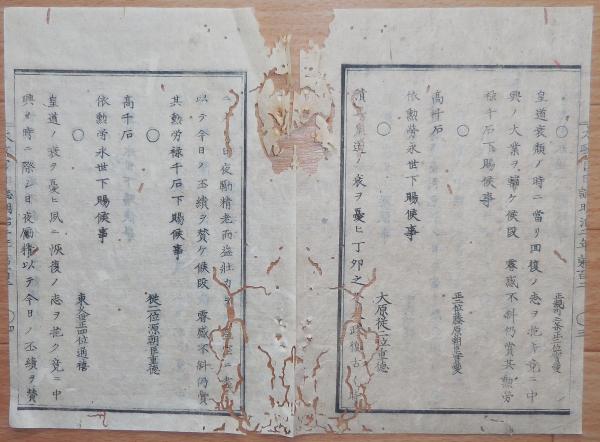 ○ 正親町三条正二位實愛
皇道衰頽ノ時ニ當リ回復ノ志ヲ抱キ竟ニ中
興ノ大業ヲ輔ケ候段 叡感不斜仍賞其勲勞
禄千石下賜候事
○ 正二位藤原朝臣實愛
高千石
依勲勞永世下賜候事
○ 大原從二位重徳
皇道ノ衰ヲ憂ヒ丁卯之 政復古
日夜勵精老而益壯力ヲ
以テ今日ノ丕績ヲ賛ケ候段 叡感不斜仍賞
其勲勞禄千石下賜候事
○ 從二位源朝臣重徳
高千石
依勲勞永世下賜候事
○ 東久世正四位通禧
皇道ノ衰ヲ憂ヒ夙ニ恢復ノ志ヲ抱ク竟ニ中
興ノ時ニ際シ日夜勵精以テ今日ノ丕績ヲ賛